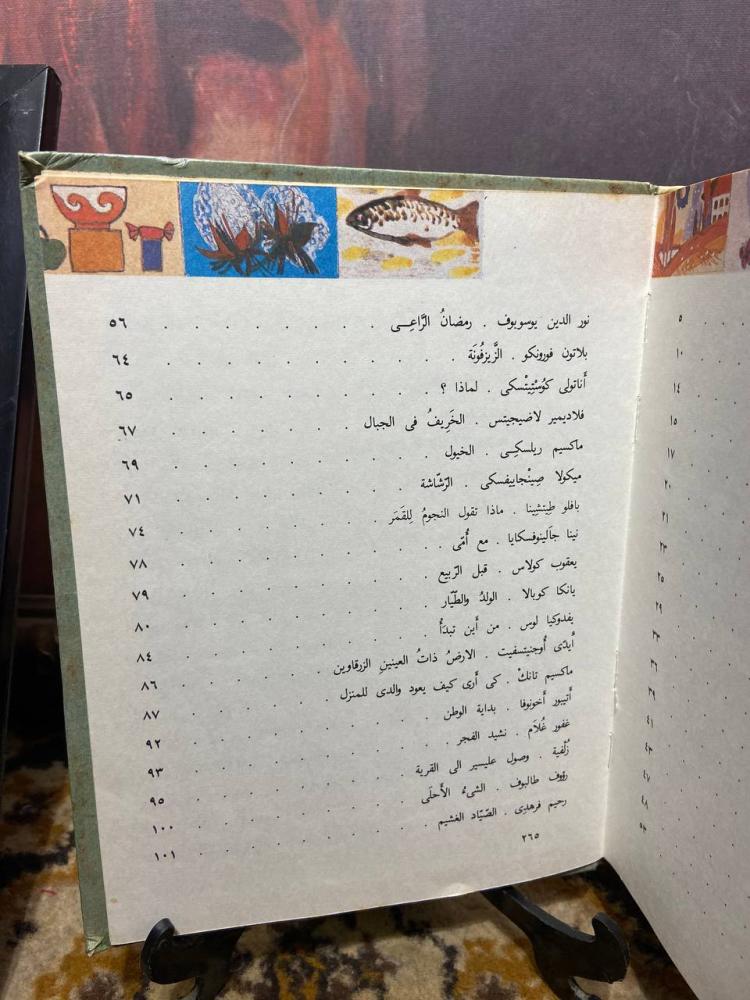 ٥
١٠
١٤
١٥
١٧
٢٠
٢١
٢٣
٢٥
٢٩
٣٣
٣٦
٣٩
٤١
٤٣
٤٧
٤٨
٥٣
نور الدين يوسوبوف . رمضانُ الرَّاعِـى . . . . . . . . ٥٦
بلاتون فورونكو . الزَّيزفُونَة . . . . . . . . . . ٦٤
أناتولى كوُسْتِيتْسكى . لماذا ؟ . . . . . . . . . ٦٥
فلاديمير لاضيجيتس . الخَرِيفُ فى الجبال . . . . . . . ٦٧
ماكسيم ريلسكِـى . الخيول . . . . . . . . . . ٦٩
ميكولا صِينْجاييفسكى . الرّشّاشة . . . . . . . . . ٧١
بافلو طِيتشِينا . ماذا تقول النجومُ لِلقَمَر . . . . . . . ٧٤
نينا جَالينوفسكايا . مع أُمّى . . . . . . . . . ٧٨
يعقوب كولاس . قبل الرّبيع . . . . . . . . . ٧٩
يانكا كوبالا . الولدُ والطّيّار . . . . . . . . . ٨٠
يفدوكيا لوس . من أَين تبدَأُ . . . . . . . . . ٨٤
أيدَى أُوجنيتسفيت . الارضُ ذاتُ العينينِ الزرقاوين . . . . . ٨٦
ماكسيم تانكْ . كى أَرى كيف يعود والدى للمنزل . . . . . ٨٧
أتيبور أخونوفا . بداية الوطن . . . . . . . . ٩٢
غفور غُلاَم . نشيد الفجر . . . . . . . . ٩٣
زُلْفية . وصول عليسير الى القرية . . . . . . . ٩٥
رؤوف طالبوف . الشىءُ الأَحلَى . . . . . . . ١٠٠
رحيم فرهدِى . الصّيّاد الغشيم . . . . . . . ١٠١
٢٦٥